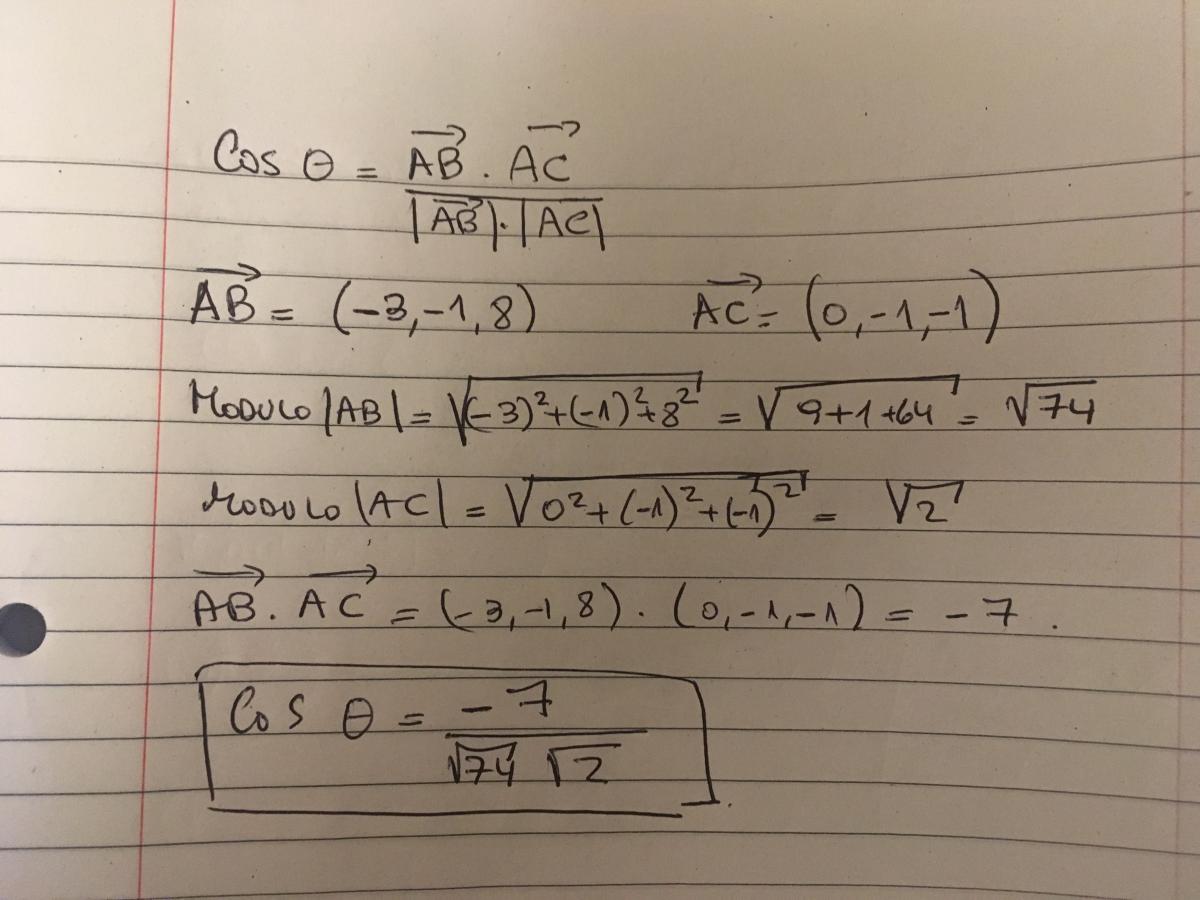 Cos θ = AB⃗ . AC⃗ / |AB⃗|.|AC|
AB⃗ = (-3,-1,8) AC⃗ = (0,-1,-1)
MODULO |AB| = √(-3)²+(-1)²+8² = √9+1+64 = √74
MODULO |AC| = √0²+(-1)²+(-1)² = √2
AB⃗ . AC⃗ = (-3,-1,8) . (0,-1,-1) = -7 .
Cos θ = -7 / √74 √2 .